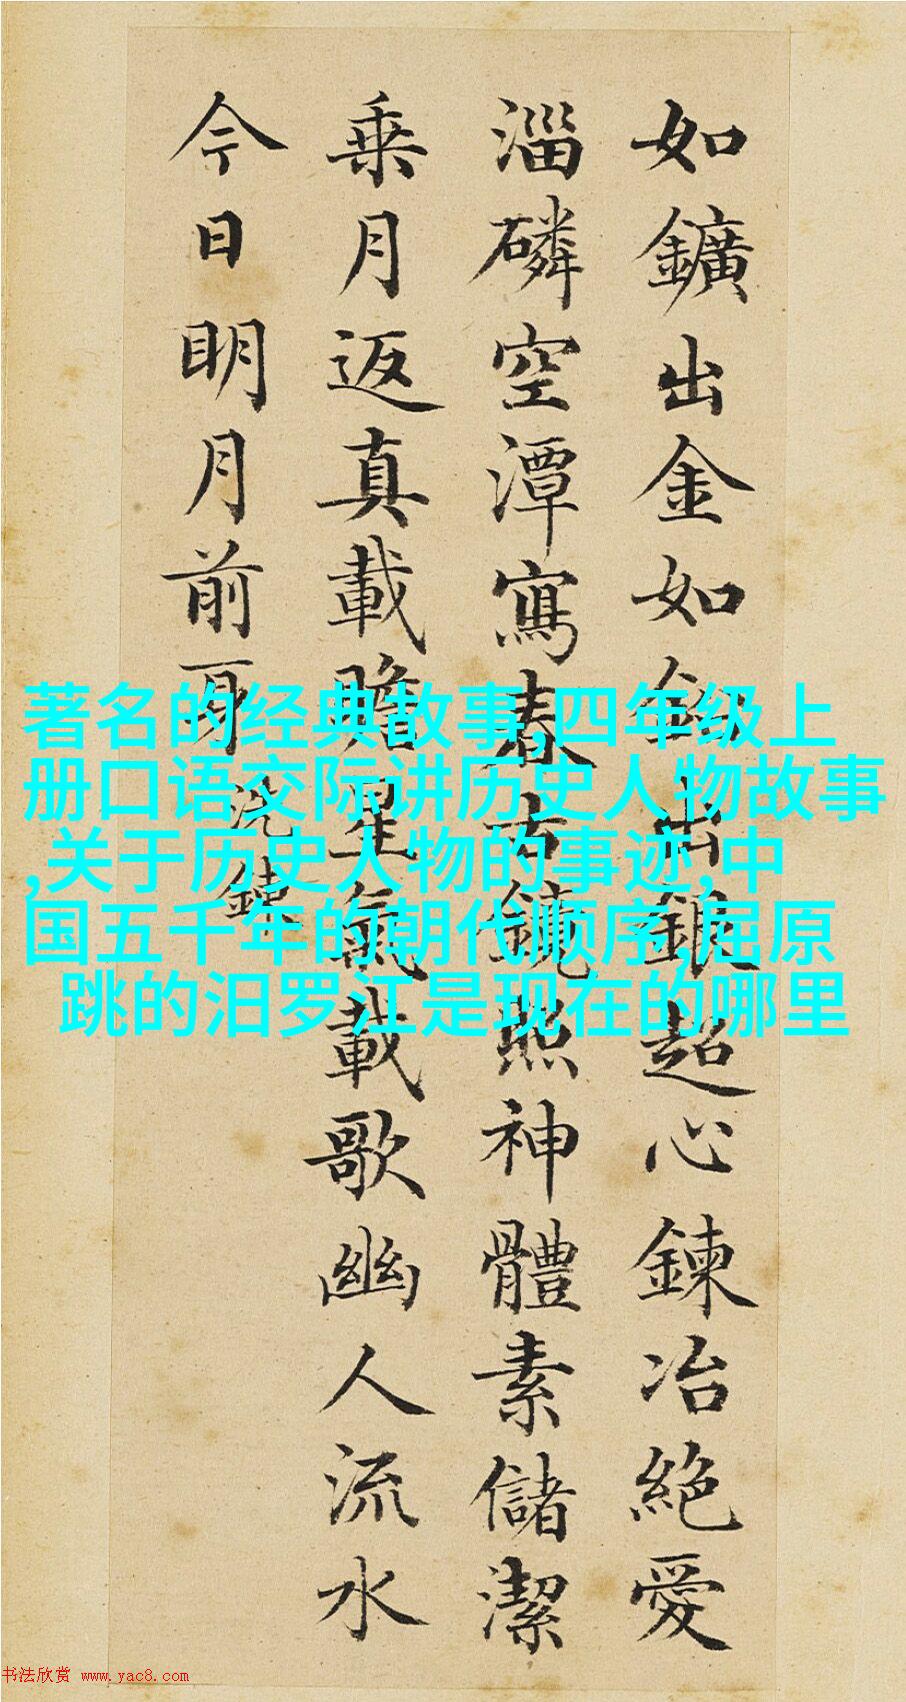 如鑛出金如鈆出銀超心鍊冶絶愛
淄磷空潭寫春古鏡照神體素儲潔
乗月返真載瞻星氣載歌幽人流水
今日明月前身
洗鍊
著名的经典故事,四年级上
册口语交际讲历史人物故事
,关于历史人物的事迹,中
国五千年的朝代顺序,屈原
跳的汨罗江是现在的哪里
书法欣赏 www.yac8.com